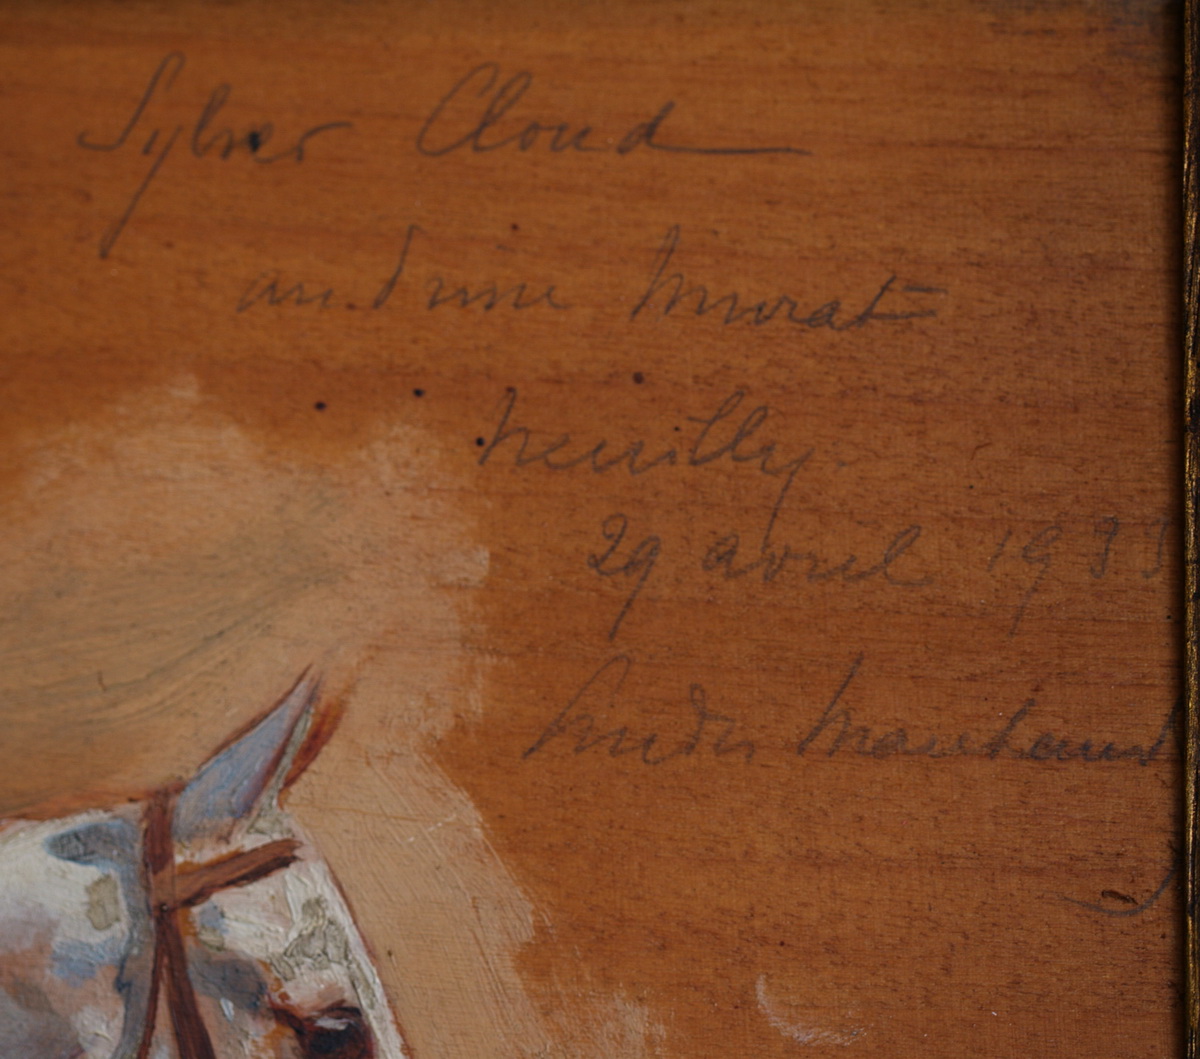 Sylver Cloud
Murat
Neuilly.
29 avril 1933
André Marchand